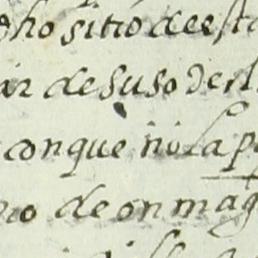 ho sitio de est
ar de suso de
con que ni la p
no de on mag